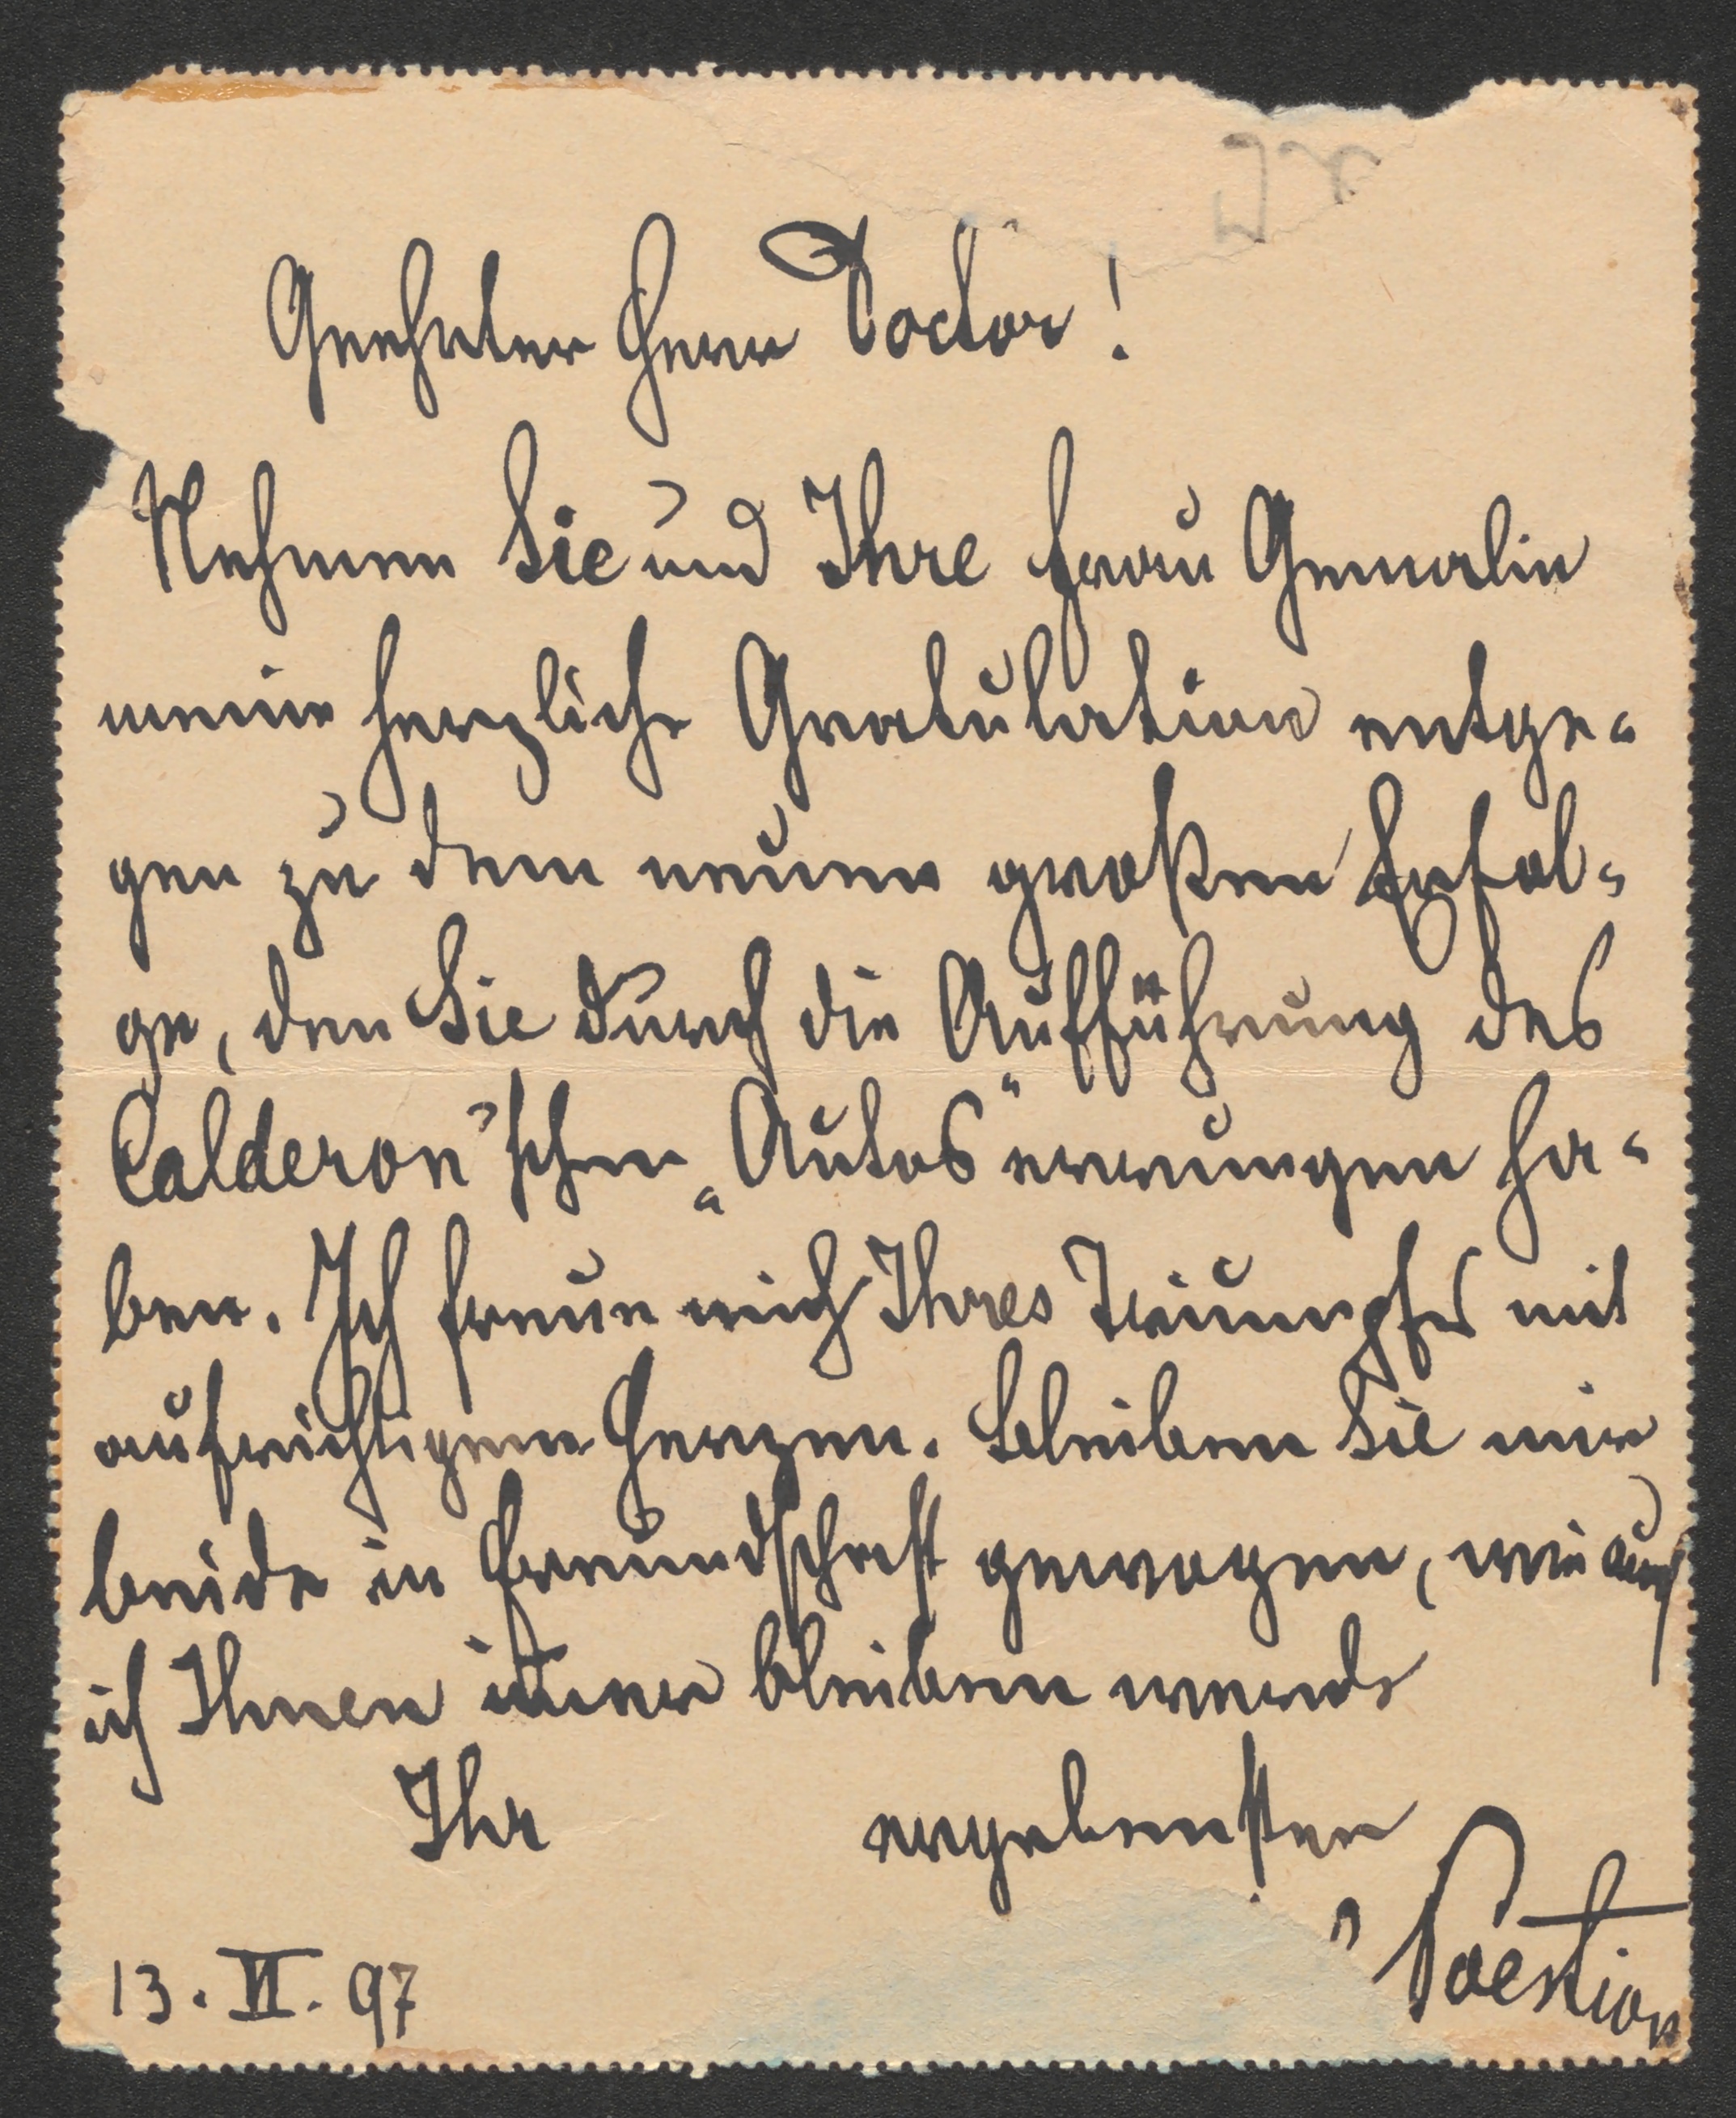 Geehrter Herr Doctor!
Nehmen Sie und Ihre Frau Gemalin
meine herzliche Gratulation entge-
gen zu dem neuen großen Erfol-
ge, den Sie durch die Aufführung des
Calderon'schen „Autos“ errungen ha-
ben. Ich freue mich Ihres Triumphes mit
aufrichtigem Herzen. Bleiben Sie mir
beide in Freundschaft gewogen, wie auch
ich Ihnen im̄er bleiben werde
Ihr ergebenster
Poestion
13. VI. 97